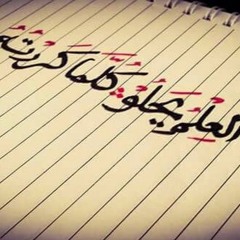 العِلْمُ يَحْلُو كُلَّمَا كَرَّرْتَهُ